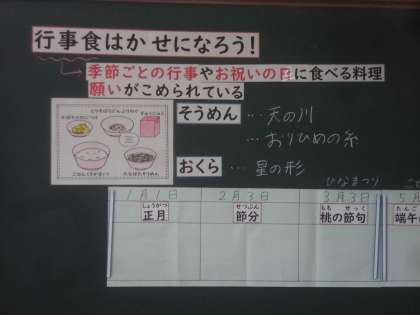 行事食はかせになろう!
季節ごとの行事やお祝いの日に食べる料理
願いがこめられている
そうめん …天の川
…おりひめの糸
おくら …星の形
ひなまつり
1月1日 2月3日 3月3日 5月
しょうがつ せつぶん もも せっく たんご
正月 節分 桃の節句 端午の